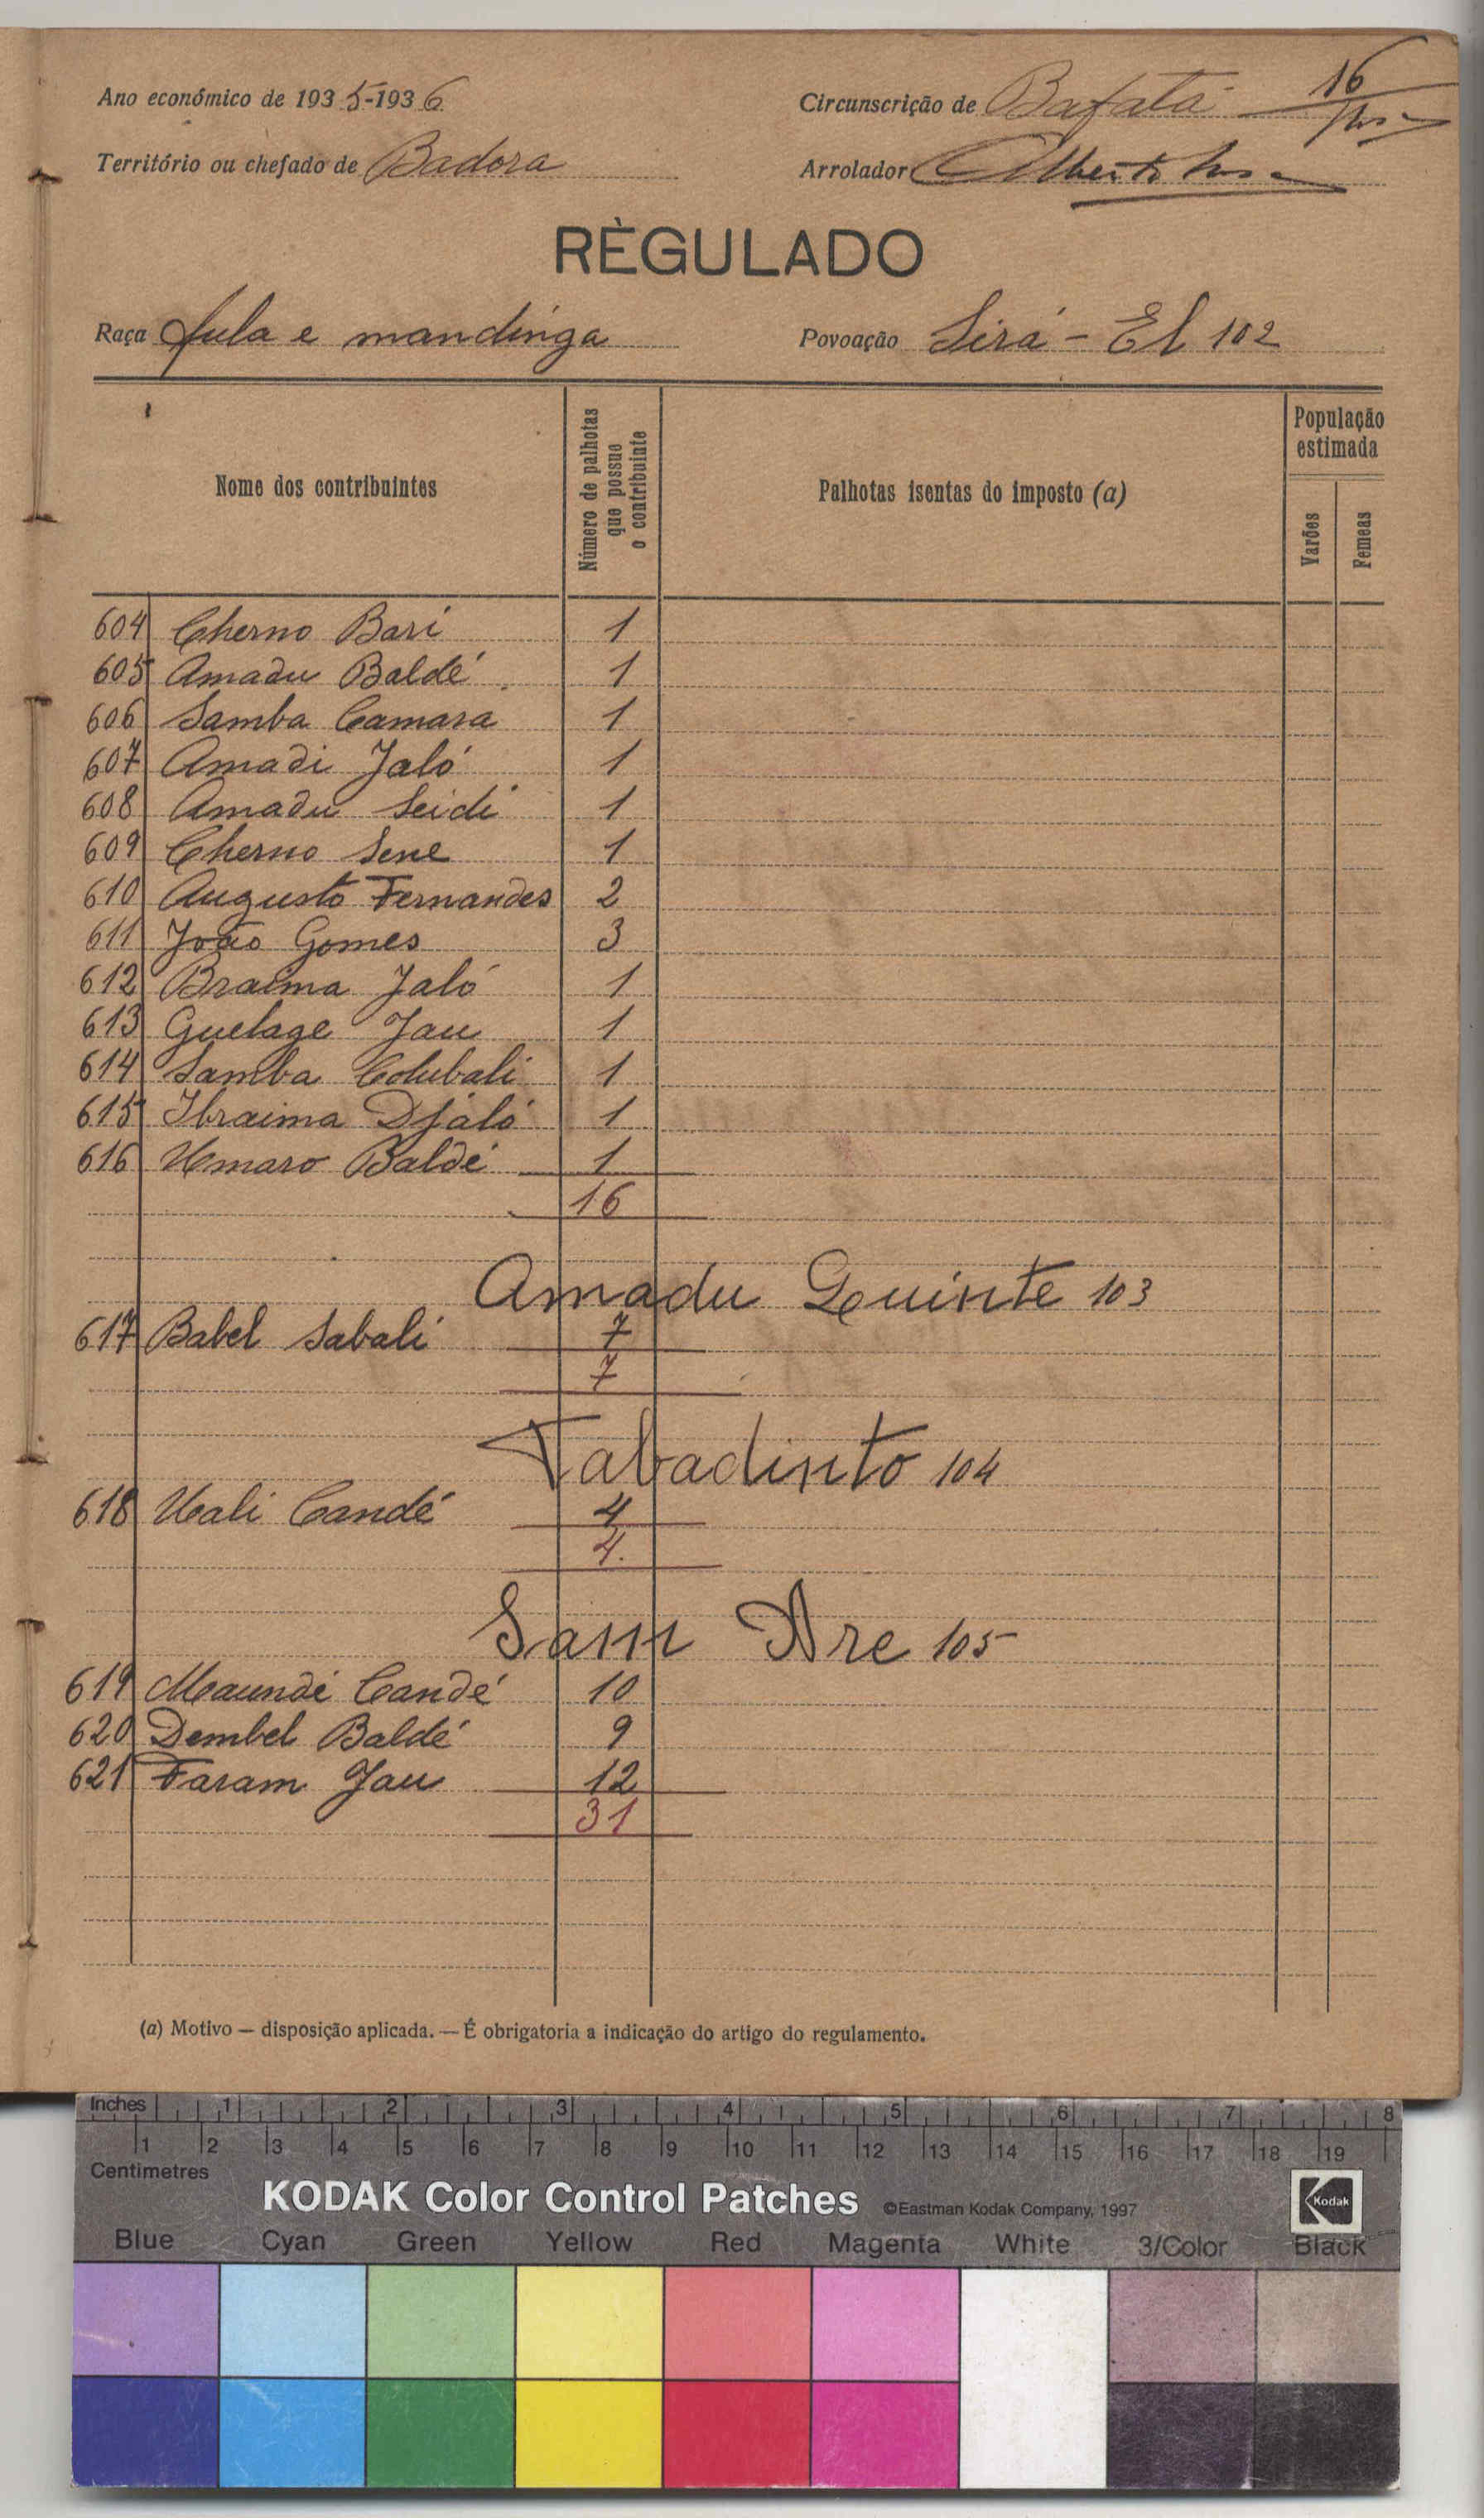 Ano económico de 1935-1936
Circunscrição de Bafatá 16
Território ou chefado de Badora
Arrolador Alberto
RÈGULADO
Raça fula e mandinga
Povoação Sirá - El 102
Nome dos contribuintes
Número de palhotas que possue o contribuinte
Palhotas isentas do imposto (a)
População estimada
Varões
Femeas
604 Cherno Bari 1
605 Amadu Baldé 1
606 Samba Camara 1
607 Amadi Jaló 1
608 Amadu Seidi 1
609 Cherno Sene 1
610 Augusto Fernandes 2
611 João Gomes 3
612 Braima Jaló 1
613 Guelage Jau 1
614 Samba Colubali 1
615 Ibraima Djaló 1
616 Umaro Baldé 1
16
Amadu Quinte 103
617 Babel Sabali 7
7
Tabadinto 104
618 Uali Candé 4
4.
Sam Are 105
619 Maundé Candé 10
620 Dembel Baldé 9
621 Faram Jau 12
31
(a) Motivo — disposição aplicada. — É obrigatoria a indicação do artigo do regulamento.
Inches 1 2 3 4 5 6 7 8
1 2 3 4 5 6 7 8 9 10 11 12 13 14 15 16 17 18 19
Centimetres
KODAK Color Control Patches ©Eastman Kodak Company, 1997 Kodak
Blue Cyan Green Yellow Red Magenta White 3/Color Black